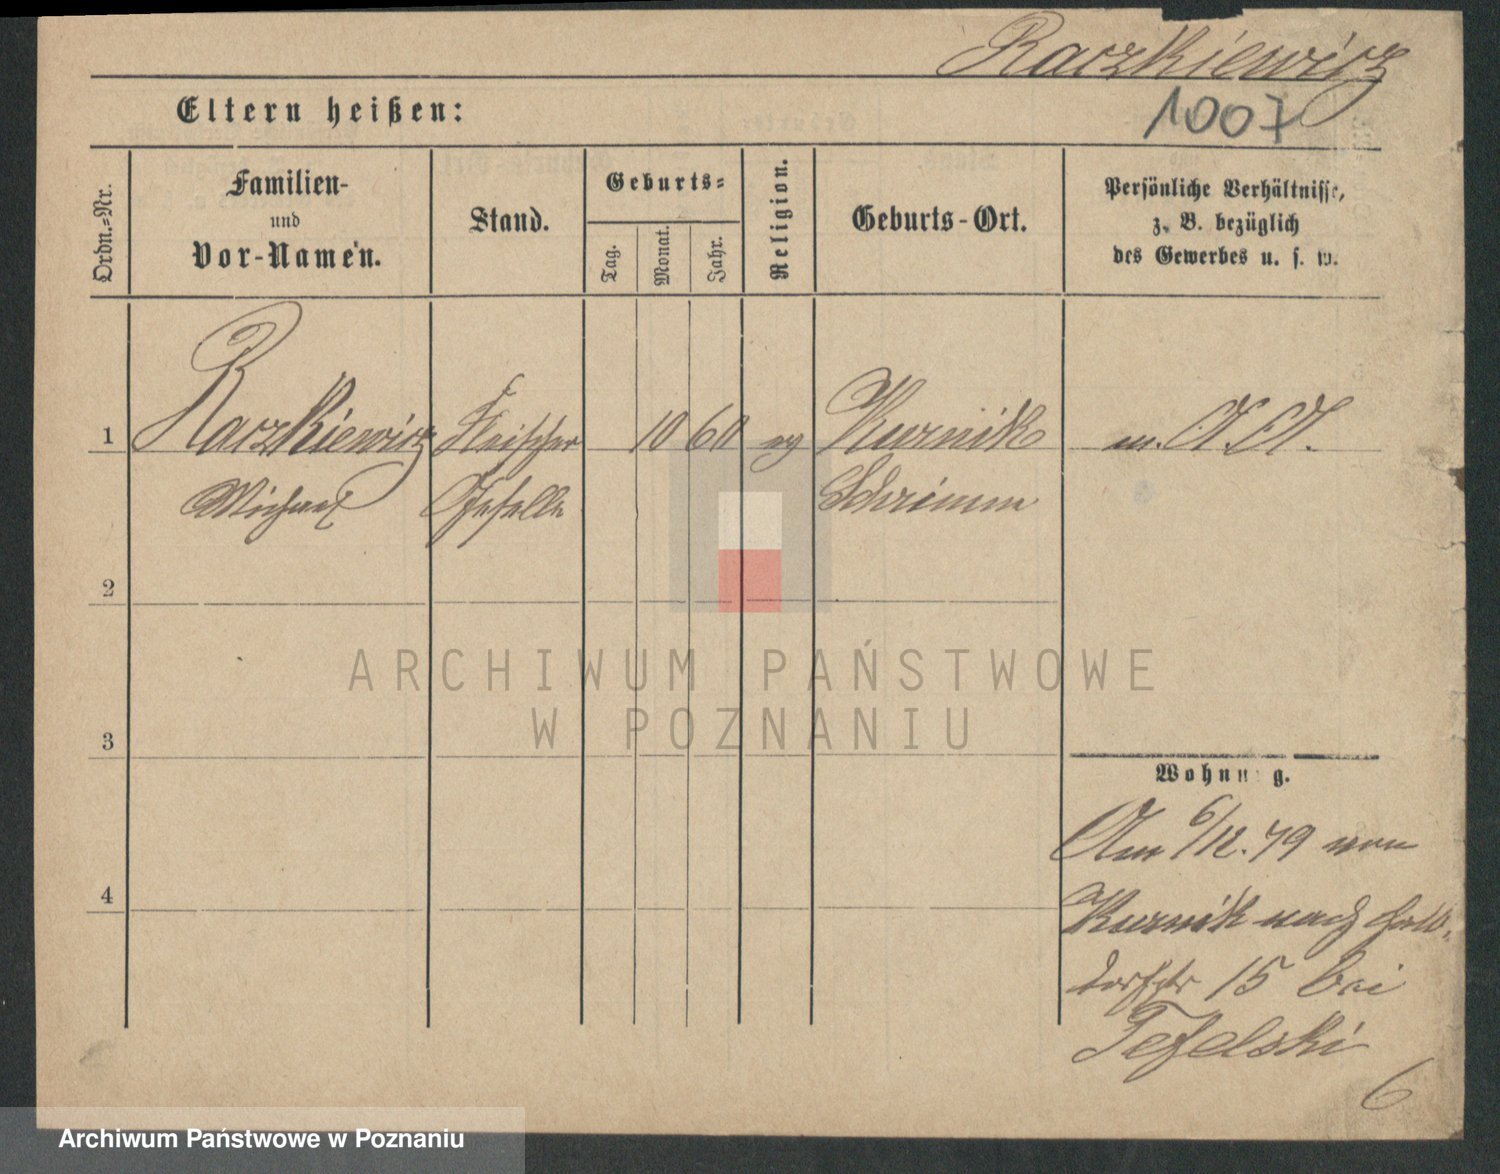 Raczkiewicz
1007
Eltern heißen:
Ordn.-Nr.
Familien-
und
Vor-Namen.
Stand.
Geburts-
Tag.
Monat.
Jahr.
Religion.
Geburts-Ort.
Persönliche Verhältnisse,
z. B. bezüglich
des Gewerbes u. s. w.
1
Raczkiewicz Fleischer 10 60 Kurnik
Michael Geselle Schrimm
2
3
4
ARCHIWUM PAŃSTWOWE
W POZNANIU
Wohnung.
Am 6/12. 79 von
Kurnik nach Halb-
dorfstr 15 bei
Tefelski
6
Archiwum Państwowe w Poznaniu